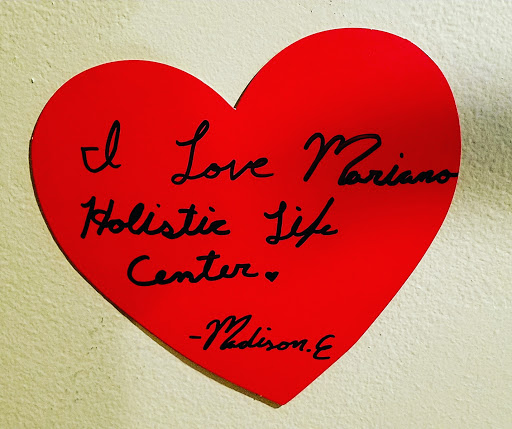 I Love Mariano
Holistic Life
Center.
-Madison.E